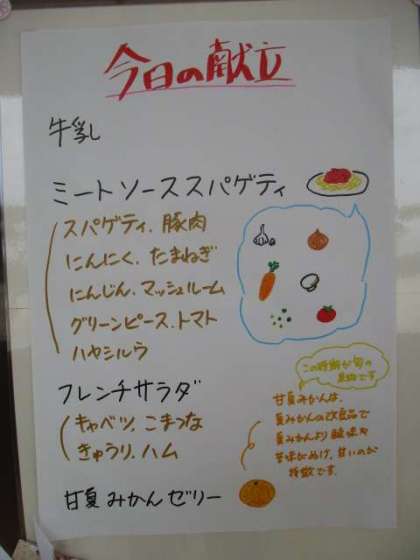 今日の献立
牛乳
ミートソーススパゲティ
スパゲティ．豚肉
にんにく．たまねぎ
にんじん．マッシュルーム
グリーンピース．トマト
ハヤシルウ
フレンチサラダ
キャベツ．こまつな
きゅうり．ハム
甘夏みかんゼリー
この時期が旬の
果物です
甘夏みかんは、
夏みかんの改良品で
夏みかんより酸味や
苦味がぬけ、甘いのが
特徴です。